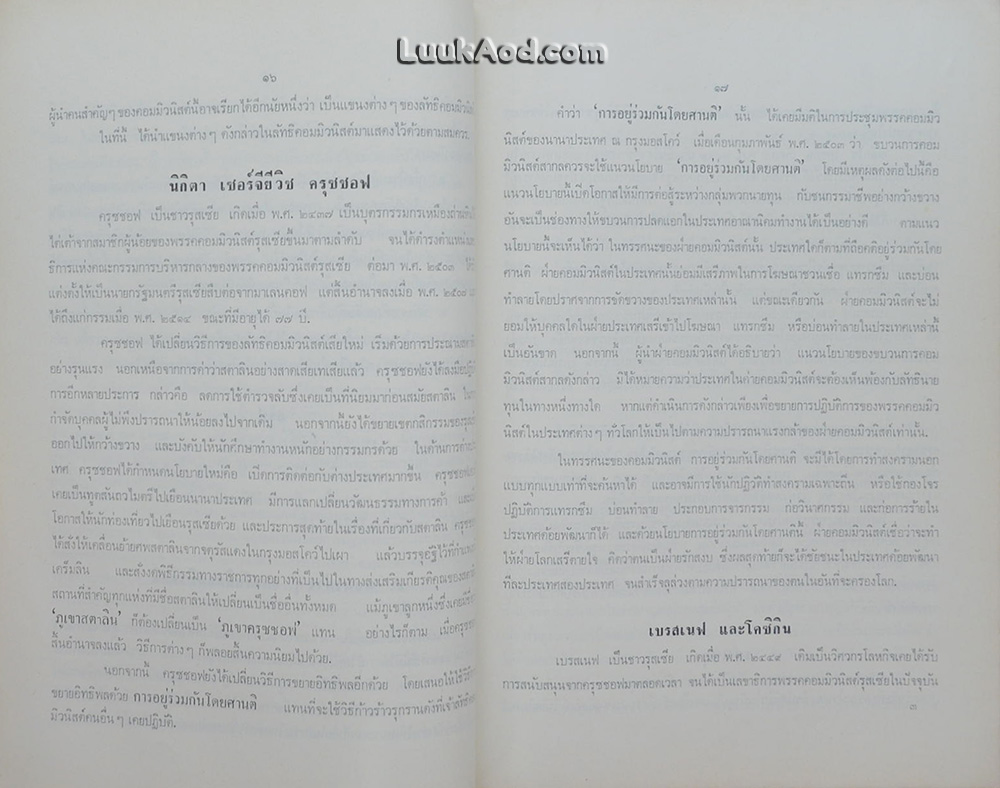 LuukAod.com
๑๖
ผู้นำคนสำคัญๆ ของคอมมิวนิสต์นี้อาจเรียกได้อีกนัยหนึ่งว่า เป็นแขนงต่าง ๆ ของลัทธิคอมมิวนิสต์
ในที่นี้ ได้นำแขนงต่าง ๆ ดังกล่าวในลัทธิคอมมิวนิสต์มาแสดงไว้ด้วยตามสมควร
นิกิตา เซอร์จียีวิช ครุชชอฟ
ครุชชอฟ เป็นชาวรุสเซีย เกิดเมื่อ พ.ศ. ๒๔๓๗ เป็นบุตรกรรมกรเหมืองถ่านหิน
ไต่เต้าจากสมาชิกผู้น้อยของพรรคคอมมิวนิสต์รุสเซียขึ้นมาตามลำดับ จนได้ดำรงตำแหน่ง
ธิการแห่งคณะกรรมการบริหารกลางของพรรคคอมมิวนิสต์รุสเซีย ต่อมา พ.ศ. ๒๕๐๓ ได้
แต่งตั้งให้เป็นนายกรัฐมนตรีรุสเซียสืบต่อจากมาเลนคอฟ แต่สิ้นอำนาจลงเมื่อ พ.ศ. ๒๕๐๗
ได้ถึงแก่กรรมเมื่อ พ.ศ. ๒๕๑๔ ขณะที่มีอายุได้ ๗๗ ปี.
ครุชชอฟ ได้เปลี่ยนวิธีการของลัทธิคอมมิวนิสต์เสียใหม่ เริ่มด้วยการประณามสตาลิน
อย่างรุนแรง นอกเหนือจากการด่าว่าสตาลินอย่างสาดเสียเทเสียแล้ว ครุชชอฟยังได้ลงมือปฏิบัติ
การอีกหลายประการ กล่าวคือ ลดการใช้ตำรวจลับซึ่งเคยเป็นที่นิยมมาก่อนสมัยสตาลิน
กำจัดบุคคลผู้ไม่พึงปรารถนาให้น้อยลงไปจากเดิม นอกจากนี้ยังได้ขยายเขตกสิกรรมของ
ออกไปให้กว้างขวาง และบังคับให้นักศึกษาทำงานหนักอย่างกรรมกรด้วย ในด้านการต่าง
ประเทศ ครุชชอฟได้กำหนดนโยบายใหม่คือ เปิดการติดต่อกับต่างประเทศมากขึ้น ครุชชอฟ
เคยเป็นทูตสันถวไมตรีไปเยือนนานาประเทศ มีการแลกเปลี่ยนวัฒนธรรมทางการค้า และ
โอกาสให้นักท่องเที่ยวไปเยือนรุสเซียด้วย และประการสุดท้ายในเรื่องที่เกี่ยวกับสตาลิน ครุชชอฟ
ได้สั่งให้เคลื่อนย้ายศพสตาลินจากจตุรัสแดงในกรุงมอสโคว์ไปเผา แล้วบรรจุอัฐิไว้ที่กำแพง
เคร็มลิน และสั่งงดพิธีกรรมทางราชการทุกอย่างที่เป็นไปในทางส่งเสริมเกียรติคุณของสตาลิน
สถานที่สำคัญทุกแห่งที่มีชื่อสตาลินให้เปลี่ยนเป็นชื่ออื่นทั้งหมด แม้ภูเขาลูกหนึ่งซึ่งเคย
'ภูเขาสตาลิน' ก็ต้องเปลี่ยนเป็น 'ภูเขาครุชชอฟ' แทน อย่างไรก็ตาม เมื่อครุชชอฟ
สิ้นอำนาจลงแล้ว วิธีการต่างๆ ก็พลอยสิ้นความนิยมไปด้วย.
นอกจากนี้ ครุชชอฟยังได้เปลี่ยนวิธีการขยายอิทธิพลอีกด้วย โดยเสนอให้ใช้วิธี
ขยายอิทธิพลด้วย การอยู่ร่วมกันโดยศานติ แทนที่จะใช้วิธีก้าวร้าวรุกรานดังที่เจ้าลัทธิ
มิวนิสต์คนอื่น ๆ เคยปฏิบัติ.
๑๗
คำว่า 'การอยู่ร่วมกันโดยศานติ' นั้น ได้เคยมีมติในการประชุมพรรคคอมมิว
นิสต์ของนานาประเทศ ณ กรุงมอสโคว์ เมื่อเดือนกุมภาพันธ์ พ.ศ. ๒๕๐๓ ว่า ขบวนการคอม
มิวนิสต์สากลควรจะใช้แนวนโยบาย 'การอยู่ร่วมกันโดยศานติ' โดยมีเหตุผลดังต่อไปนี้คือ
แนวนโยบายนี้เปิดโอกาสให้มีการต่อสู้ระหว่างกลุ่มพวกนายทุน กับชนกรรมาชีพอย่างกว้างขวาง
อันจะเป็นช่องทางให้ขบวนการปลดแอกในประเทศอาณานิคมทำงานได้เป็นอย่างดี ตามแนว
นโยบายนี้จะเห็นได้ว่า ในทรรศนะของฝ่ายคอมมิวนิสต์นั้น ประเทศใดก็ตามที่ถือคติอยู่ร่วมกันโดย
ศานติ ฝ่ายคอมมิวนิสต์ในประเทศนั้นย่อมมีเสรีภาพในการโฆษณาชวนเชื่อ แทรกซึม และบ่อน
ทำลายโดยปราศจากการขัดขวางของประเทศเหล่านั้น แต่ขณะเดียวกัน ฝ่ายคอมมิวนิสต์จะไม่
ยอมให้บุคคลใดในฝ่ายประเทศเสรีเข้าไปโฆษณา แทรกซึม หรือบ่อนทำลายในประเทศเหล่านี้
เป็นอันขาด นอกจากนี้ ผู้นำฝ่ายคอมมิวนิสต์ได้อธิบายว่า แนวนโยบายของขบวนการคอม
มิวนิสต์สากลดังกล่าว มิได้หมายความว่าประเทศในค่ายคอมมิวนิสต์จะต้องเห็นพ้องกับลัทธินาย
ทุนในทางหนึ่งทางใด หากแต่ดำเนินการดังกล่าวเพียงเพื่อขยายการปฏิบัติการของพรรคคอมมิว
นิสต์ในประเทศต่าง ๆ ทั่วโลกให้เป็นไปตามความปรารถนาแรงกล้าของฝ่ายคอมมิวนิสต์เท่านั้น.
ในทรรศนะของคอมมิวนิสต์ การอยู่ร่วมกันโดยศานติ จะมีได้โดยการทำสงครามนอก
แบบทุกแบบเท่าที่จะค้นหาได้ และอาจมีการใช้นักปฏิวัติทำสงครามเฉพาะถิ่น หรือใช้กองโจร
ปฏิบัติการแทรกซึม บ่อนทำลาย ประกอบการจารกรรม ก่อวินาศกรรม และก่อการร้ายใน
ประเทศด้อยพัฒนาก็ได้ และด้วยนโยบายการอยู่ร่วมกันโดยศานตินี้ ฝ่ายคอมมิวนิสต์เชื่อว่าจะทำ
ให้ฝ่ายโลกเสรีตายใจ คิดว่าตนเป็นฝ่ายรักสงบ ซึ่งผลสุดท้ายก็จะได้ชัยชนะในประเทศด้อยพัฒนา
ทีละประเทศสองประเทศ จนสำเร็จลุล่วงตามความปรารถนาของตนในอันที่จะครองโลก.
เบรสเนฟ และโคซิกิน
เบรสเนฟ เป็นชาวรุสเซีย เกิดเมื่อ พ.ศ. ๒๔๔๙ เดิมเป็นวิศวกรโลหกิจเคยได้รับ
การสนับสนุนจากครุชชอฟมาตลอดเวลา จนได้เป็นเลขาธิการพรรคคอมมิวนิสต์รุสเซียในปัจจุบัน
๓